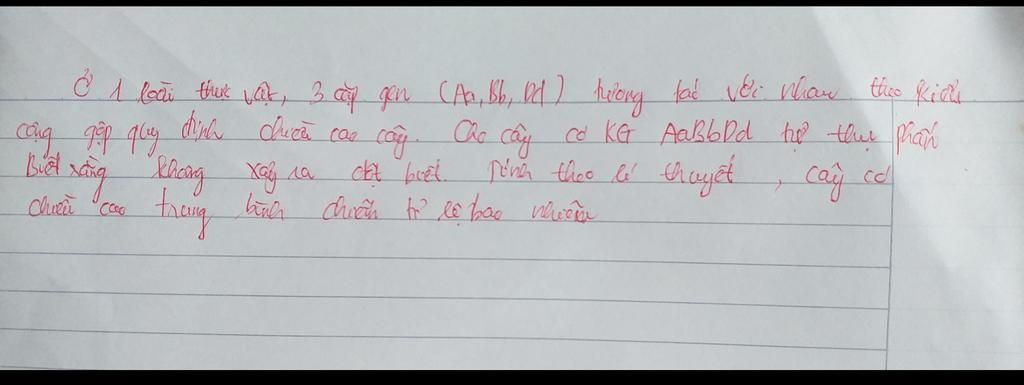 Ở 1 loài thực vật, 3 cặp gen (Aa, Bb, Dd) tương tác với nhau theo kiểu
cộng gộp quy định chiều cao cây. Các cây có KG AaBbDd tự thụ phấn
Biết rằng không xảy ra đột biết. Tính theo lí thuyết, cây có
chiều cao trung bình chiếm tỉ lệ bao nhiêu